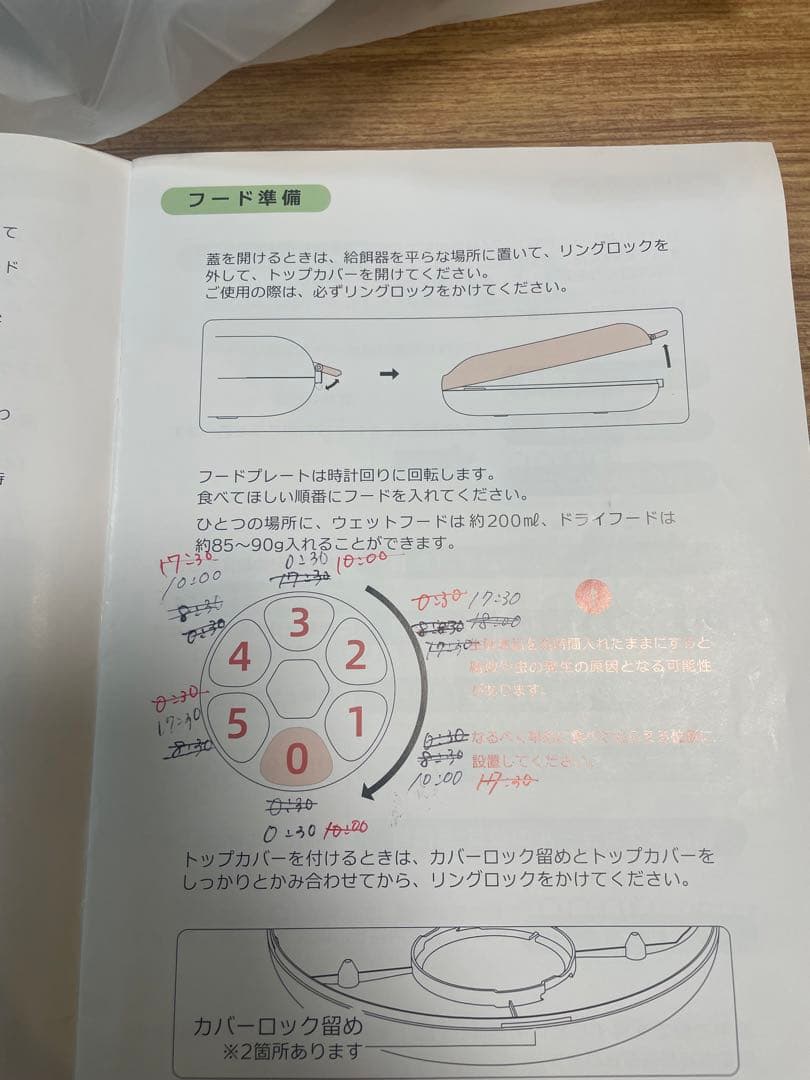 フード準備
て
ド
つ
蓋を開けるときは、給餌器を平らな場所に置いて、リングロックを
外して、トップカバーを開けてください。
ご使用の際は、必ずリングロックをかけてください。
フードプレートは時計回りに回転します。
食べてほしい順番にフードを入れてください。
ひとつの場所に、ウェットフードは約200㎖、ドライフードは
約85〜90g入れることができます。
17:30
10:00
8:30
0:30
0:30
17:30
10:00
0:30 17:30
8:30 18:00
17:30
を
時間入れたままにすると
虫の発生の原因となる可能性
があります。
3
4
2
5
1
0
0:30
17:30
8:30
0:30
8:30
設置してください。
10:00 17:30
0:30
0:30 10:00
トップカバーを付けるときは、カバーロック留めとトップカバーを
しっかりとかみ合わせてから、リングロックをかけてください。
カバーロック留め
※2箇所あります